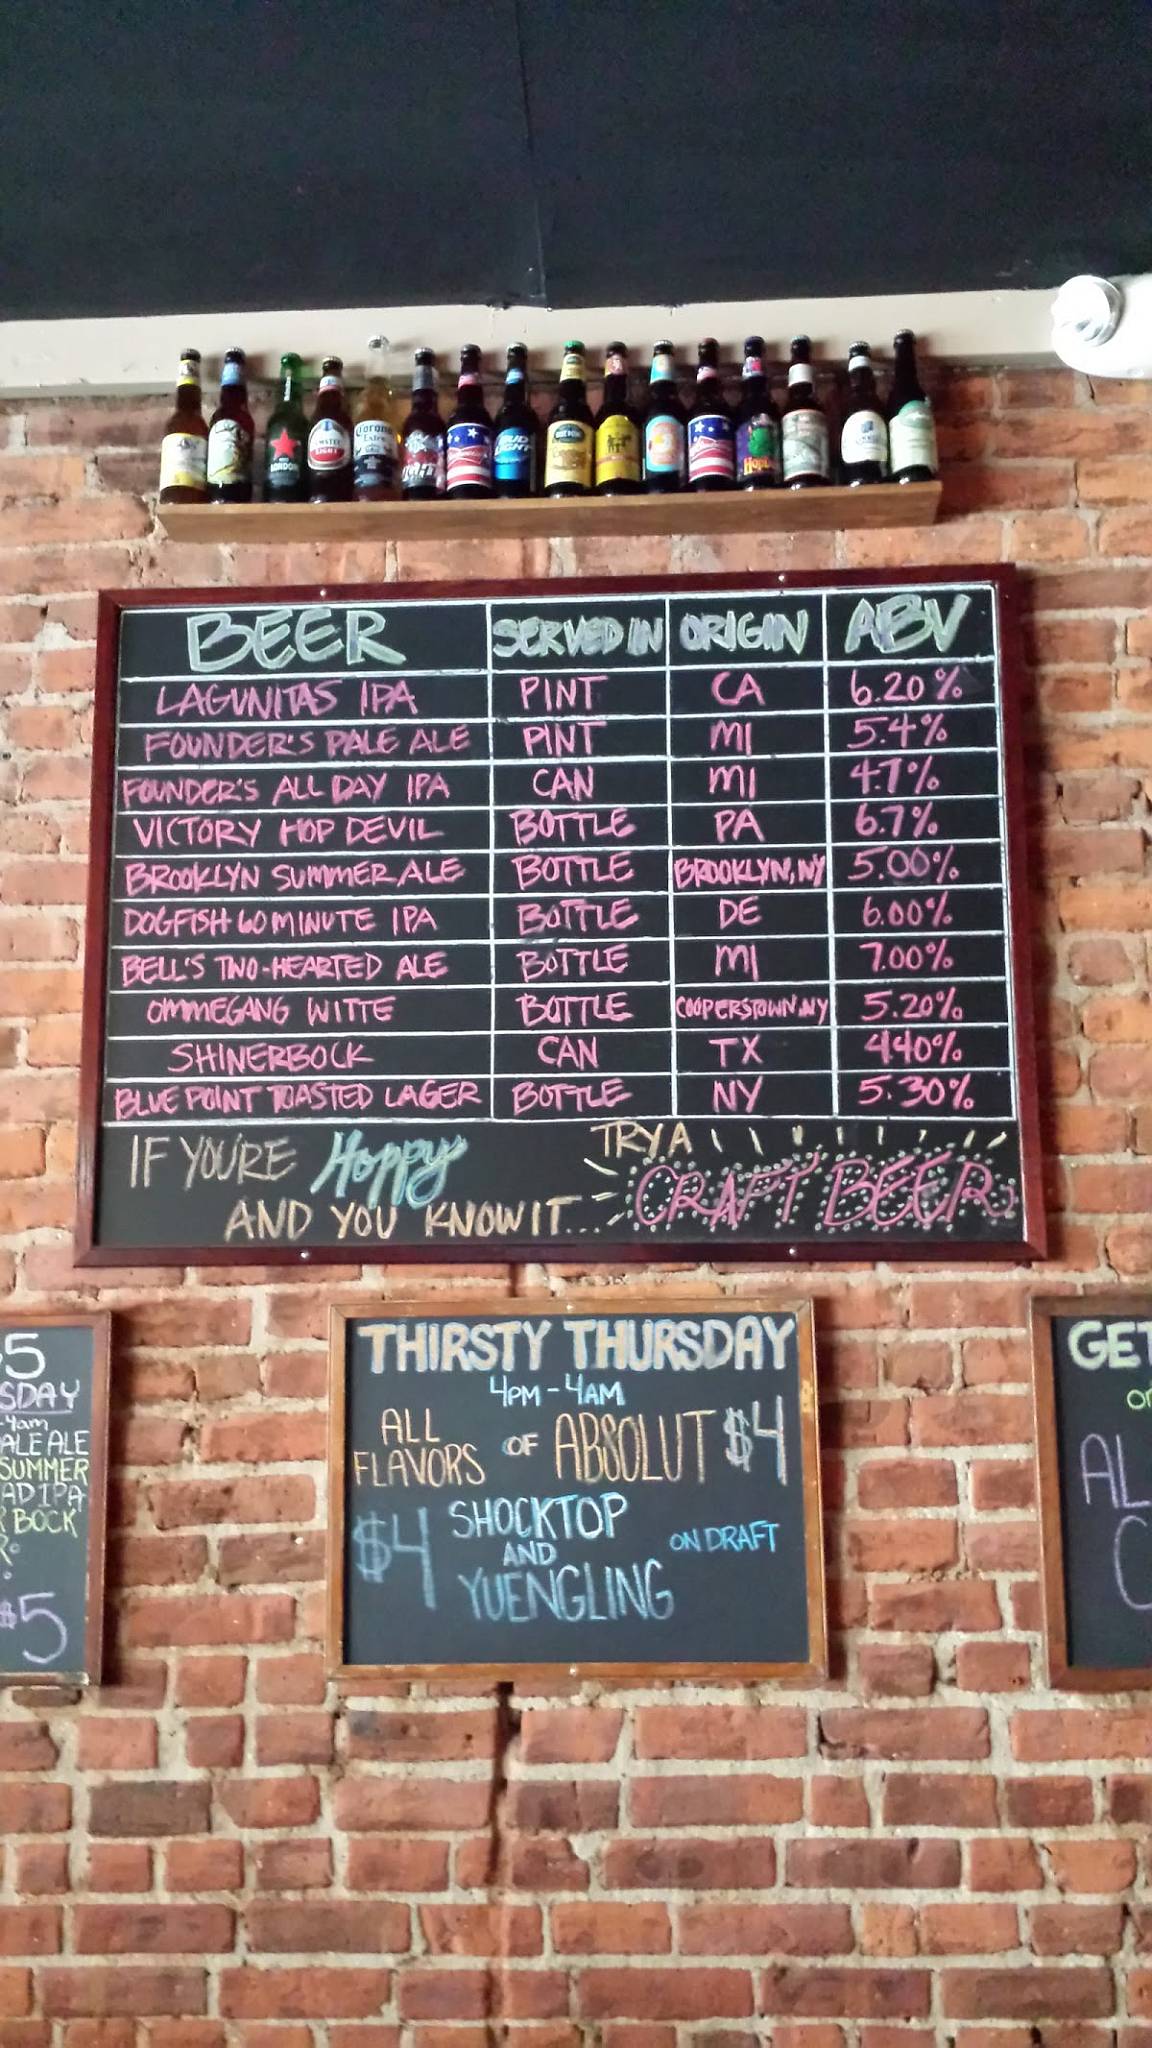 Corona
Extra
BUD
LIGHT
BEER SERVED IN ORIGIN ABV
LAGUNITAS IPA PINT CA 6.20%
FOUNDER'S PALE ALE PINT MI 5.4%
FOUNDER'S ALL DAY IPA CAN MI 4.7%
VICTORY HOP DEVIL BOTTLE PA 6.7%
BROOKLYN SUMMER ALE BOTTLE BROOKLYN, NY 5.00%
DOGFISH 60 MINUTE IPA BOTTLE DE 6.00%
BELL'S TWO-HEARTED ALE BOTTLE MI 7.00%
OMMEGANG WITTE BOTTLE COOPERSTOWN, NY 5.20%
SHINERBOCK CAN TX 4.40%
BLUE POINT TOASTED LAGER BOTTLE NY 5.30%
IF YOU'RE Hoppy
AND YOU KNOW IT...
TRY A
CRAFT BEER
5
SDAY
-4am
ALE ALE
SUMMER
AD IPA
R BOCK
$5
THIRSTY THURSDAY
4PM - 4AM
ALL FLAVORS OF ABSOLUT $4
$4 SHOCKTOP
AND
YUENGLING
ON DRAFT
GET
AL
C